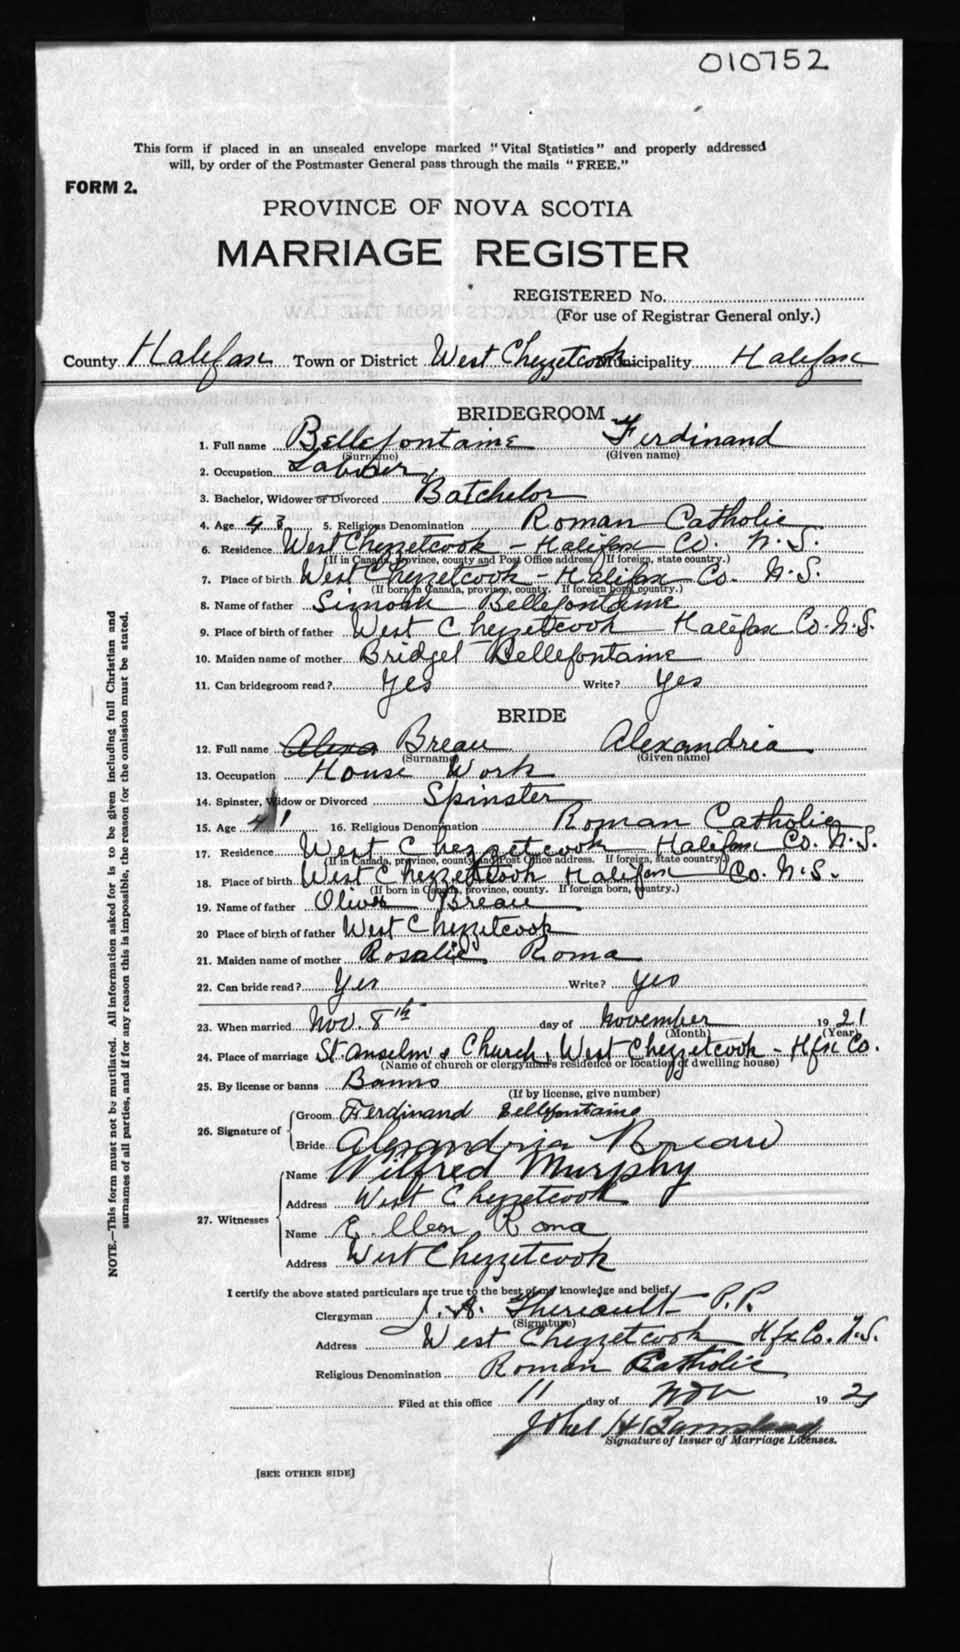 010752
This form if placed in an unsealed envelope marked "Vital Statistics" and properly addressed
will, by order of the Postmaster General pass through the mails "FREE."
FORM 2.
PROVINCE OF NOVA SCOTIA
MARRIAGE REGISTER
REGISTERED No.
(For use of Registrar General only.)
County Halifax Town or District West Chezzetcook Municipality Halifax
BRIDEGROOM
1. Full name Bellefontaine Ferdinand
(Surname) (Given name)
2. Occupation Laborer
3. Bachelor, Widower or Divorced Batchelor
4. Age 43 5. Religious Denomination Roman Catholic
6. Residence West Chezzetcook - Halifax Co. N.S.
(If in Canada, province, county and Post Office address. If foreign, state country.)
7. Place of birth West Chezzetcook - Halifax Co. N.S.
(If born in Canada, province, county. If foreign born, country.)
8. Name of father Simon Bellefontaine
9. Place of birth of father West Chezzetcook Halifax Co. N.S.
10. Maiden name of mother Bridget Bellefontaine
11. Can bridegroom read? Yes Write? Yes
BRIDE
12. Full name Alexa Breau Alexandria
(Surname) (Given name)
13. Occupation House Work
14. Spinster, Widow or Divorced Spinster
15. Age 41 16. Religious Denomination Roman Catholic
17. Residence West Chezzetcook Halifax Co. N.S.
(If in Canada, province, county and Post Office address. If foreign, state country.)
18. Place of birth West Chezzetcook Halifax Co. N.S.
(If born in Canada, province, county. If foreign born, country.)
19. Name of father Oliver Breau
20 Place of birth of father West Chezzetcook
21. Maiden name of mother Rosalie Roma
22. Can bride read? Yes Write? Yes
23. When married Nov. 8th day of November 1921
(Month) (Year)
24. Place of marriage St Anselm's Church, West Chezzetcook - Hfx Co.
(Name of church or clergyman's residence or location of dwelling house)
25. By license or banns Banns
(If by license, give number)
26. Signature of Groom Ferdinand Bellefontaine
Bride Alexandria Breau
27. Witnesses Name Wilfred Murphy
Address West Chezzetcook
Name Ellen Roma
Address West Chezzetcook
I certify the above stated particulars are true to the best of my knowledge and belief.
Clergyman J. A. Theriault P.P.
(Signature)
Address West Chezzetcook Hfx Co. N.S.
Religious Denomination Roman Catholic
Filed at this office 11 day of Nov 1921
John H
Signature of Issuer of Marriage Licenses.
[SEE OTHER SIDE]
NOTE.—This form must not be mutilated. All information asked for is to be given including full Christian and
surnames of all parties, and if for any reason this is impossible, the reason for the omission must be stated.